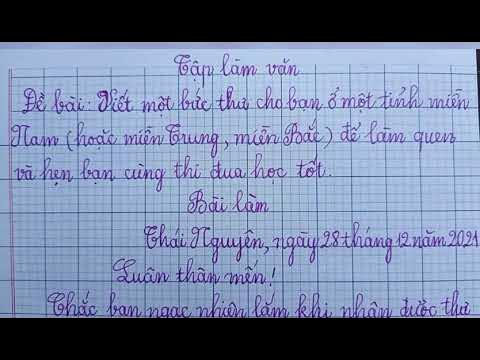 Tập làm văn
Đề bài: Viết một bức thư cho bạn ở một tỉnh miền
Nam (hoặc miền Trung, miền Bắc) để làm quen
và hẹn bạn cùng thi đua học tốt.
Bài làm
Thái Nguyên, ngày 28 tháng 12 năm 2021
Luân thân mến!
Chắc bạn ngạc nhiên lắm khi nhận được thư